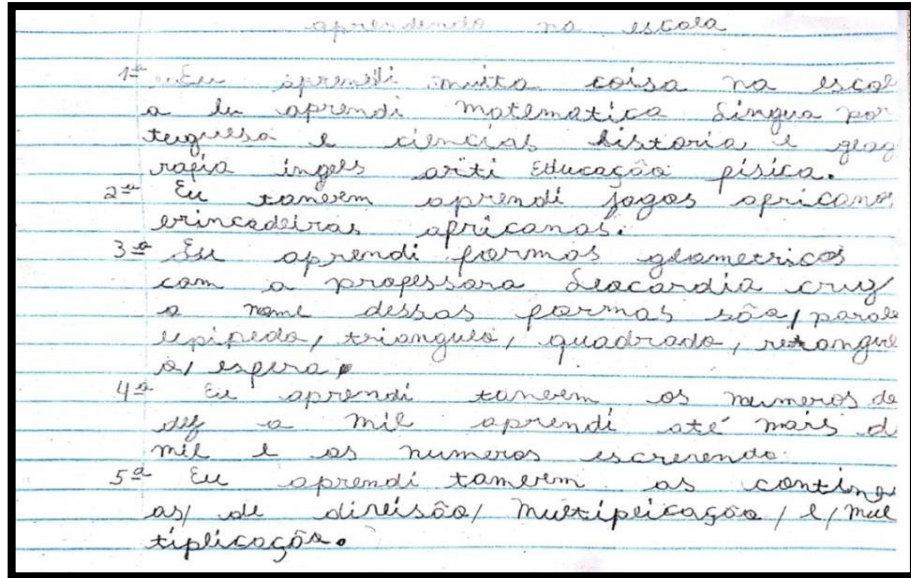 aprendendo na escola
1ª Eu aprendi muita coisa na escol
a Eu aprendi matematica Lingua por
tuguesa e ciencias historia e geog
rafia ingels arti Educação física.
2ª Eu tanbem aprendi jogos africanos
brincadeiras africanas.
3ª Eu aprendi formas geometricas
com a professora Leocardia cruz
o nome dessas formas são/ parale
lepipedo/ triangulo/ quadrado, retangul
o/ esfera.
4ª Eu aprendi tanbem os numeros de
dez a mil aprendi até mais d
mil e os numeros escrevendo.
5ª Eu aprendi tambem as contin
as/ de divisão/ Multiplicação/ e/ mul
tiplicação.